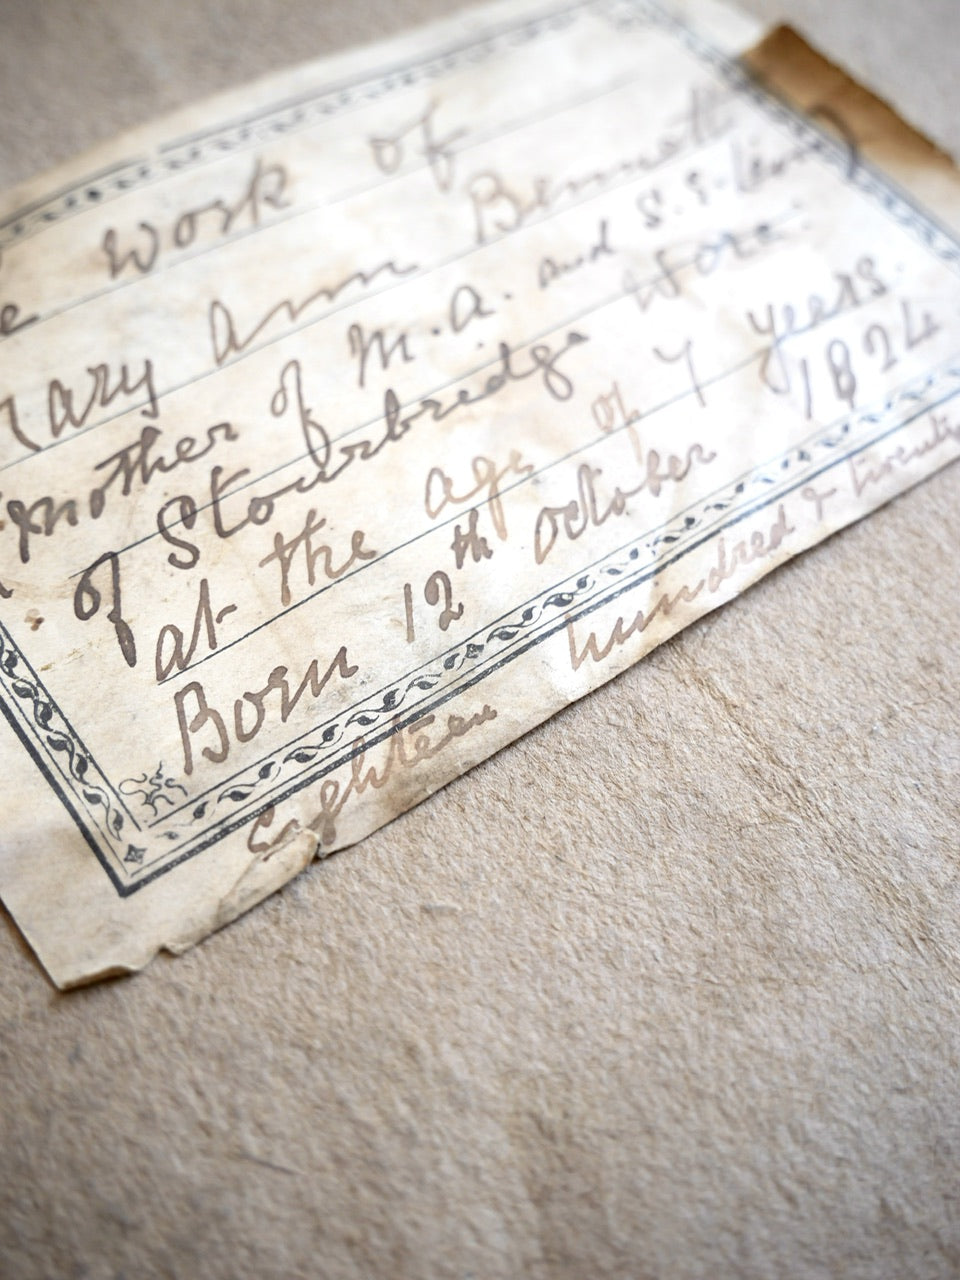 e Work of
Mary Ann Bennett
mother of M.A. and S.S.
of Stourbridge Worc.
at the age of 7 years.
Born 12th October 1824
Eighteen hundred & twenty